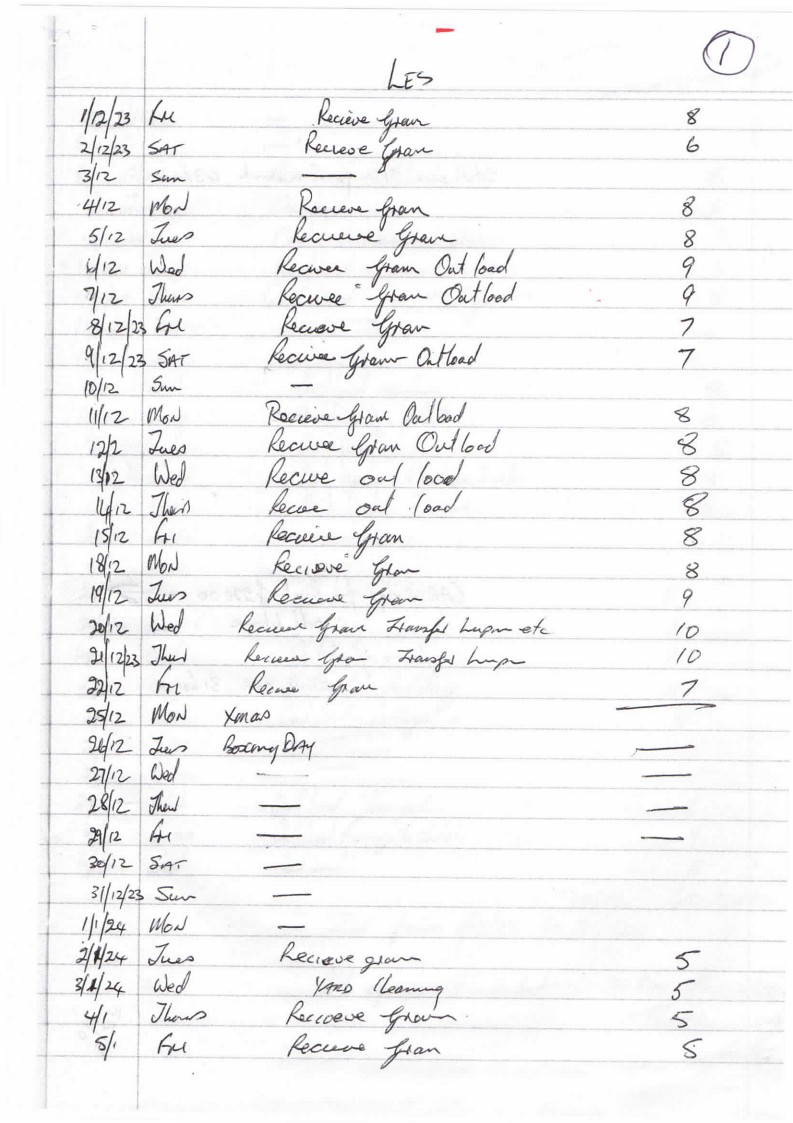 1
LES
1/12/23 Fri Recieve Grain 8
2/12/23 SAT Recieve Grain 6
3/12 Sun —
4/12 MON Recieve Grain 8
5/12 Tues Recieve Grain 8
6/12 Wed Recieve Grain Out load 9
7/12 Thurs Recieve Grain Outload 9
8/12/23 Fri Recieve Grain 7
9/12/23 SAT Recieve Grain Outload 7
10/12 Sun —
11/12 MON Recieve Grain Outload 8
12/2 Tues Recieve Grain Outload 8
13/12 Wed Recieve out load 8
14/12 Thurs Recieve out load 8
15/12 Fri Recieve Grain 8
18/12 MON Recieve Grain 8
19/12 Tues Recieve Grain 9
20/12 Wed Recieve Grain Transfer Lupin etc 10
21/12/23 Thur Recieve Grain Transfer Lupin 10
22/12 Fri Recieve Grain 7
25/12 MON Xmas —
26/12 Tues Boxing DAY —
27/12 Wed — —
28/12 Thur — —
29/12 Fri — —
30/12 SAT —
31/12/23 Sun —
1/1/24 MON —
2/1/24 Tues Recieve grain 5
3/1/24 Wed YARD Cleaning 5
4/1 Thurs Recieve Grain 5
5/1 Fri Recieve Grain 5